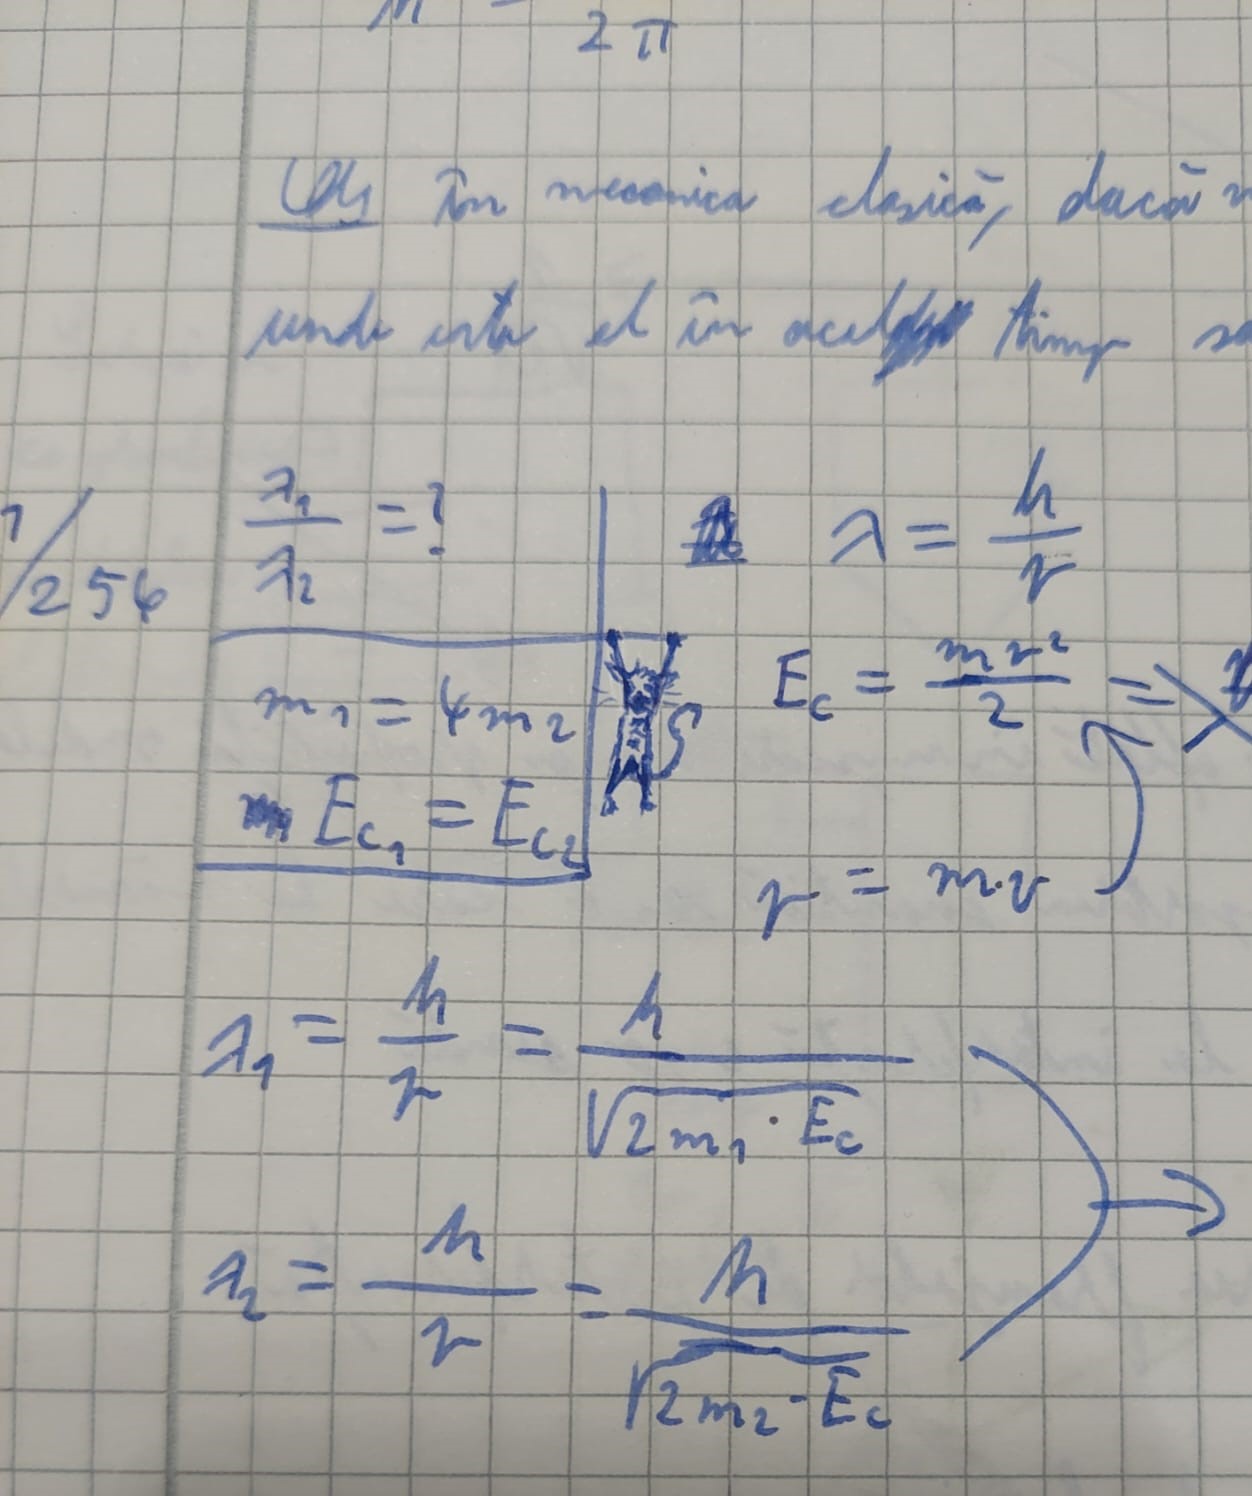 2 π
Obs În mecanica clasică, dacă
unde este el în acel timp
1/256
λ₁/λ₂ = ?
λ = h/p
m₁ = 4m₂
E_c = mv²/2 =
E_c₁ = E_c₂
p = m·v
λ₁ = h/p = h/√(2m₁·E_c)
λ₂ = h/p = h/√(2m₂·E_c)